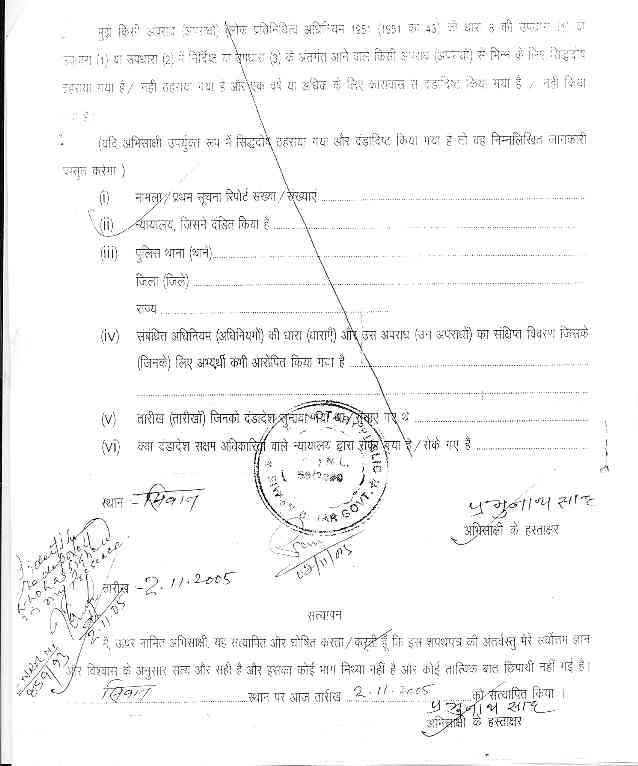 मुझे किसी अपराध (अपराधों) लोक प्रतिनिधित्व अधिनियम 1951 (1951 का 43) की धारा 8 की उपधारा (1) या
उपधारा (1) या उपधारा (2) में निर्दिष्ट या उपधारा (3) के अंतर्गत आने वाले किसी अपराध (अपराधों) से भिन्न के लिए सिद्धदोष
ठहराया गया है / नहीं ठहराया गया है और एक वर्ष या अधिक के लिए कारावास से दंडादिष्ट किया गया है / नहीं किया
गया है
(यदि अभिसाक्षी उपर्युक्त रूप में सिद्धदोष ठहराया गया और दंडादिष्ट किया गया है तो वह निम्नलिखित जानकारी
प्रस्तुत करेगा )
(i) मामला / प्रथम सूचना रिपोर्ट संख्या / संख्याएं
(ii) न्यायालय, जिसने दंडित किया है
(iii) पुलिस थाना (थाने)
जिला (जिले)
राज्य
(iv) संबंधित अधिनियम (अधिनियमों) की धारा (धाराएँ) और उस अपराध (उन अपराधों) का संक्षिप्त विवरण जिसके
(जिनके) लिए अभ्यर्थी कभी आरोपित किया गया है
(v) तारीख (तारीखों) जिनको दंडादेश सुनाया गया था / सुनाए गए थे
(vi) क्या दंडादेश सक्षम अधिकारिता वाले न्यायालय द्वारा रोका गया है / रोके गए हैं
GOVT.
स्थान - सिवान
प्रभुनाथ साह
अभिसाक्षी के हस्ताक्षर
02/11/05
I identify
the deponent
who has signed
in my presence
2.11.05
तारीख - 2.11.2005
सत्यापन
मैं, ऊपर नामित अभिसाक्षी, यह सत्यापित और घोषित करता / करती हूँ कि इस शपथपत्र की अंतर्वस्तु मेरे सर्वोत्तम ज्ञान
और विश्वास के अनुसार सत्य और सही है और इसका कोई भाग मिथ्या नहीं है और कोई तात्विक बात छिपायी नहीं गई है।
सिवान स्थान पर आज तारीख 2.11.2005 को सत्यापित किया ।
प्रभुनाथ साह
अभिसाक्षी के हस्ताक्षर